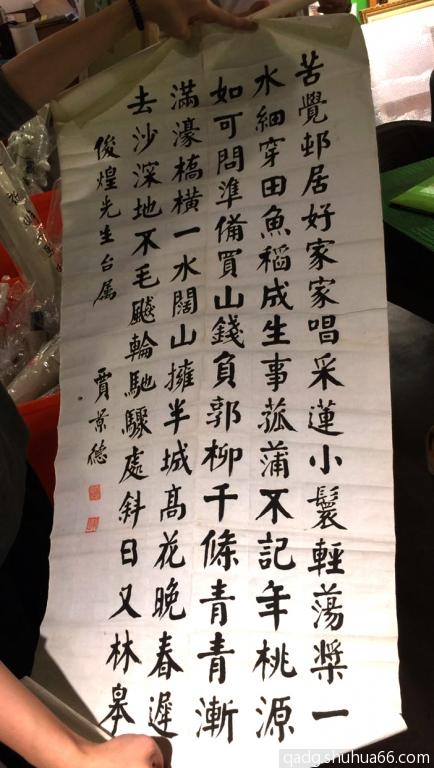 苦覺邨居好家家唱采蓮小鬟輕蕩槳一
水細穿田魚稻成生事菰蒲不記年桃源
如可問準備買山錢負郭柳千條青青漸
滿濠橋橫一水闊山擁半城高花晚春遲
去沙深地不毛飈輪馳驟處斜日又林皋
俊煌先生台屬
賈景德
qadg.shuhua66.com